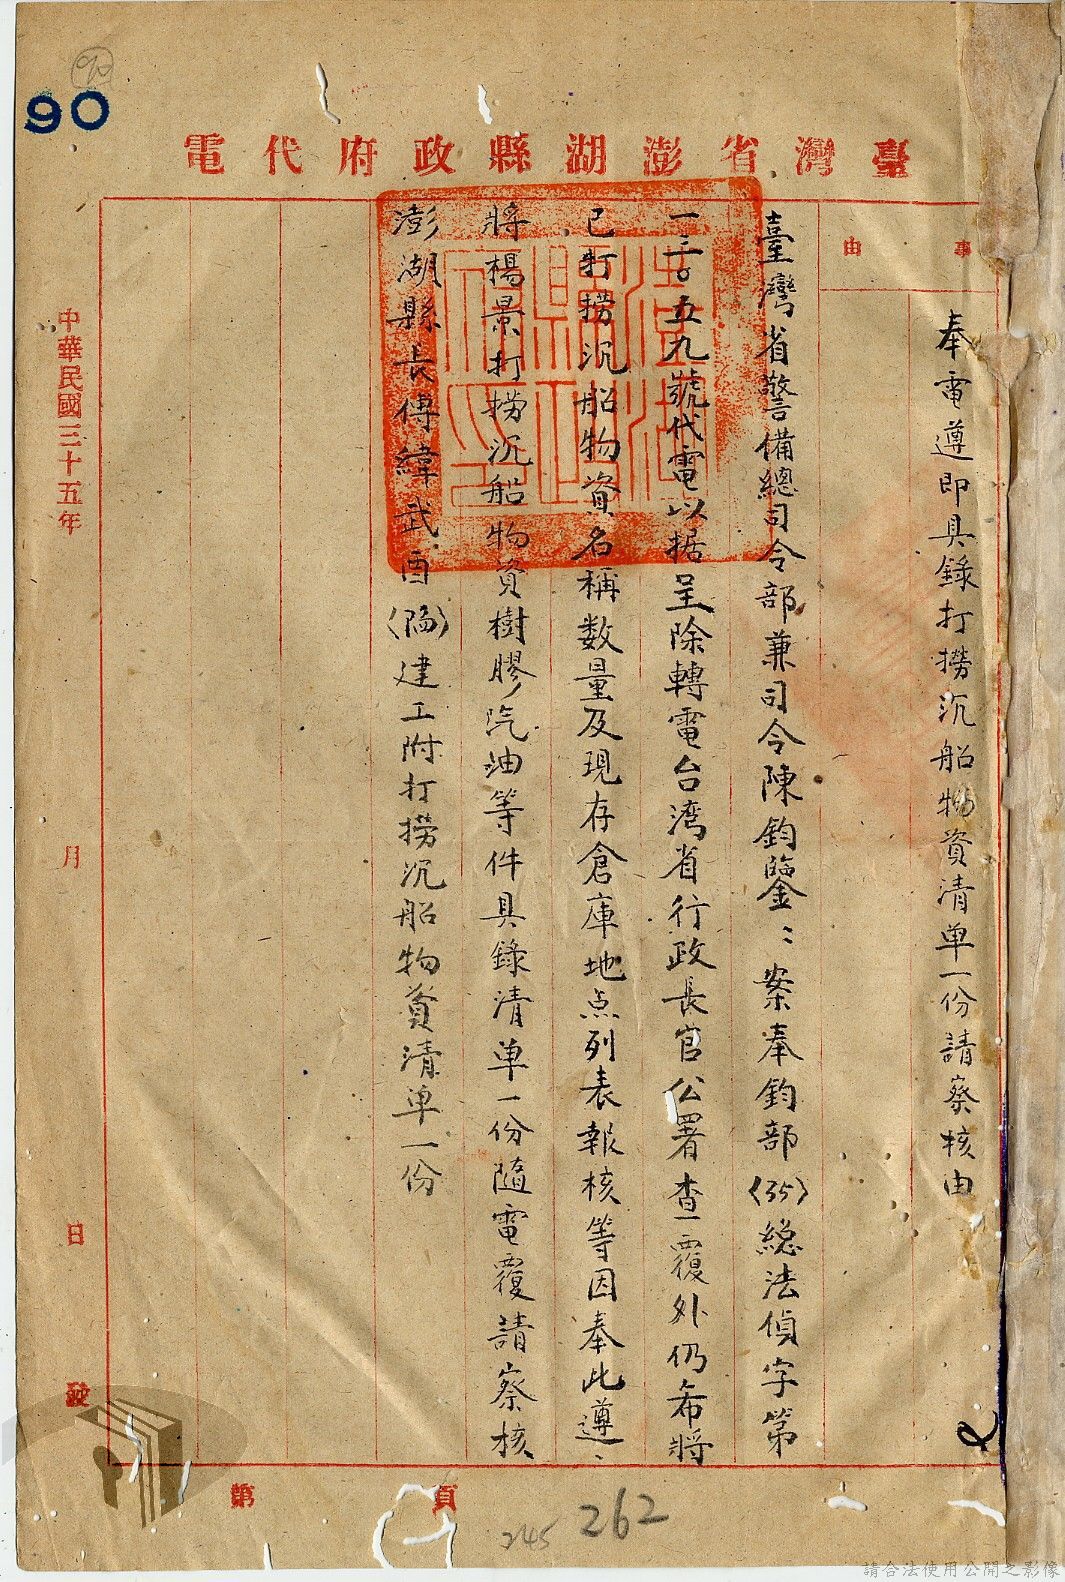 90
臺灣省澎湖縣政府代電
事由
奉電遵即具錄打撈沉船物資清单一份請察核由
臺灣省警備總司令部兼司令陳鈞鑒：案奉鈞部〈35〉総法偵字第
一三〇五九號代電以据呈除轉電台湾省行政長官公署查覆外仍希將
已打撈沉船物資名稱数量及現存倉庫地点列表報核等因奉此遵、
將楊景打撈沉船物資樹膠汽油等件具錄清单一份隨電覆請察核
澎湖縣長傅緯武酉建工附打撈沉船物資清单一份
中華民國三十五年 月 日 發
第 頁
245
262
請合法使用公開之影像